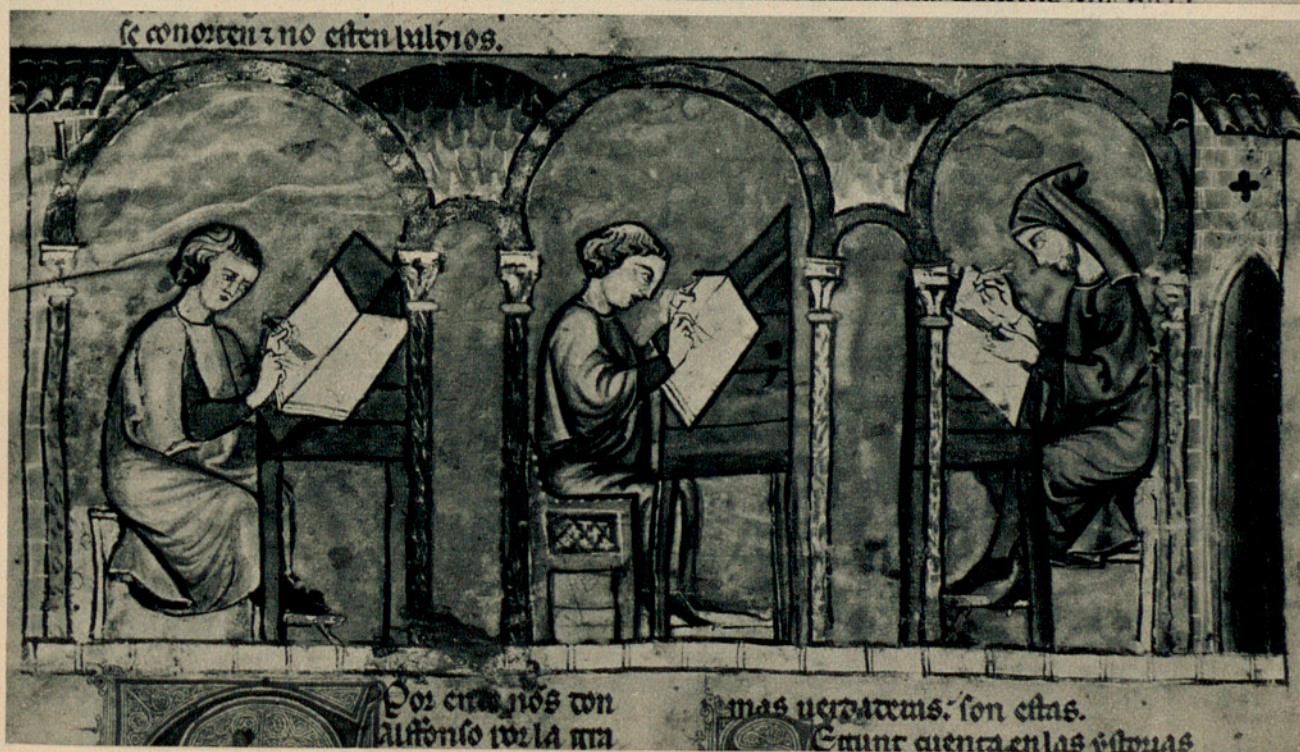 se conorten ⁊ no esten baldios.
Por ende nos don
Alffonso por la gra
mas uerdaderas. son estas.
Segunt cuenta en las ystorias